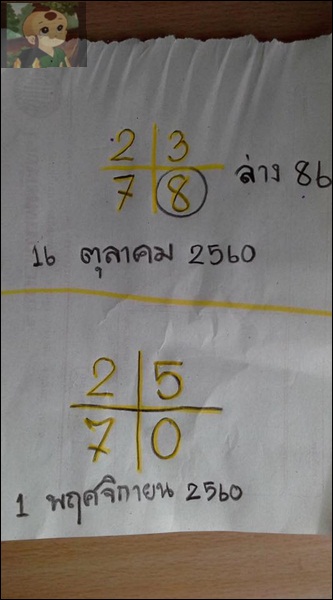 2 3
7 8 ล่าง 86
16 ตุลาคม 2560
2 5
7 0
1 พฤศจิกายน 2560